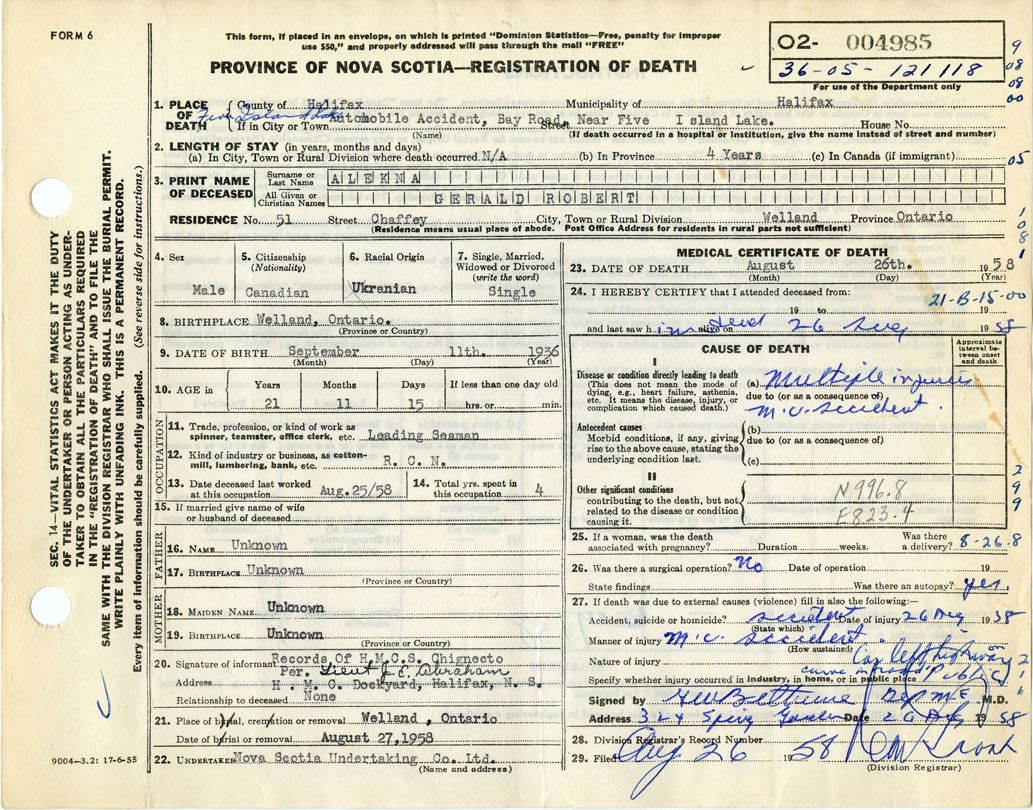 FORM 6
This form, if placed in an envelope, on which is printed "Dominion Statistics—Free, penalty for improper
use $50," and properly addressed will pass through the mail "FREE"
PROVINCE OF NOVA SCOTIA—REGISTRATION OF DEATH
O2- 004985
36-05-121118
For use of the Department only
9
08
08
00
1. PLACE OF DEATH
County of Halifax Municipality of Halifax
Five Island Lake
If in City or Town Automobile Accident, Bay Road, Street Near Five Island Lake. House No.
(Name) (If death occurred in a hospital or institution, give the name instead of street and number)
2. LENGTH OF STAY (in years, months and days)
(a) In City, Town or Rural Division where death occurred N/A (b) In Province 4 Years (c) In Canada (if immigrant)
05
3. PRINT NAME OF DECEASED
Surname or Last Name ALEKNA
All Given or Christian Names GERALD ROBERT
RESIDENCE No. 51 Street Chaffey City, Town or Rural Division Welland Province Ontario
(Residence means usual place of abode. Post Office Address for residents in rural parts not sufficient)
1
0
8
1
4. Sex Male
5. Citizenship (Nationality) Canadian
6. Racial Origin Ukranian
7. Single, Married, Widowed or Divorced (write the word) Single
8. BIRTHPLACE Welland, Ontario.
(Province or Country)
9. DATE OF BIRTH September 11th. 1936
(Month) (Day) (Year)
10. AGE in Years 21 Months 11 Days 15 If less than one day old hrs. or min.
OCCUPATION
11. Trade, profession, or kind of work as
spinner, teamster, office clerk, etc. Leading Seaman
12. Kind of industry or business, as cotton-
mill, lumbering, bank, etc. R. C. N.
13. Date deceased last worked
at this occupation Aug.25/58
14. Total yrs. spent in
this occupation 4
15. If married give name of wife
or husband of deceased
FATHER
16. NAME Unknown
17. BIRTHPLACE Unknown
(Province or Country)
MOTHER
18. MAIDEN NAME Unknown
19. BIRTHPLACE Unknown
(Province or Country)
20. Signature of informant Records Of H.M.C.S. Chignecto
Per. Lieut J.E. Abraham
Address H. M. C. Dockyard, Halifax, N. S.
Relationship to deceased None
21. Place of burial, cremation or removal Welland, Ontario
Date of burial or removal August 27,1958
22. UNDERTAKER Nova Scotia Undertaking Co. Ltd.
(Name and address)
MEDICAL CERTIFICATE OF DEATH
23. DATE OF DEATH August 26th. 1958
(Month) (Day) (Year)
24. I HEREBY CERTIFY that I attended deceased from:
21-B-15-00
19 to 19
and last saw him alive on dead 26 Aug 1958
CAUSE OF DEATH
Approximate interval between onset and death
I
Disease or condition directly leading to death
(This does not mean the mode of
dying, e.g., heart failure, asthenia,
etc. It means the disease, injury, or
complication which caused death.)
(a) Multiple injuries
due to (or as a consequence of)
M.C. accident.
Antecedent causes
Morbid conditions, if any, giving
rise to the above cause, stating the
underlying condition last.
(b)
due to (or as a consequence of)
(c)
II
Other significant conditions
contributing to the death, but not
related to the disease or condition
causing it.
N996.8
E823.4
2
9
9
25. If a woman, was the death
associated with pregnancy? Duration weeks. Was there a delivery? 8-26.8
26. Was there a surgical operation? No Date of operation 19
State findings Was there an autopsy? yes.
27. If death was due to external causes (violence) fill in also the following:—
Accident, suicide or homicide? accident Date of injury 26 Aug 1958
(State which)
Manner of injury M.C. accident.
(How sustained)
Nature of injury Car left highway on
curve
Specify whether injury occurred in industry, in home, or in public place
Signed by M.D.
Address Date 26 Aug 1958
28. Division Registrar's Record Number
29. Filed Aug 26 1958
(Division Registrar)
SEC. 14—VITAL STATISTICS ACT MAKES IT THE DUTY
OF THE UNDERTAKER OR PERSON ACTING AS UNDER-
TAKER TO OBTAIN ALL THE PARTICULARS REQUIRED
IN THE "REGISTRATION OF DEATH" AND TO FILE THE
SAME WITH THE DIVISION REGISTRAR WHO SHALL ISSUE THE BURIAL PERMIT.
WRITE PLAINLY WITH UNFADING INK. THIS IS A PERMANENT RECORD.
Every item of information should be carefully supplied. (See reverse side for instructions.)
9004—3.2: 17-6-55